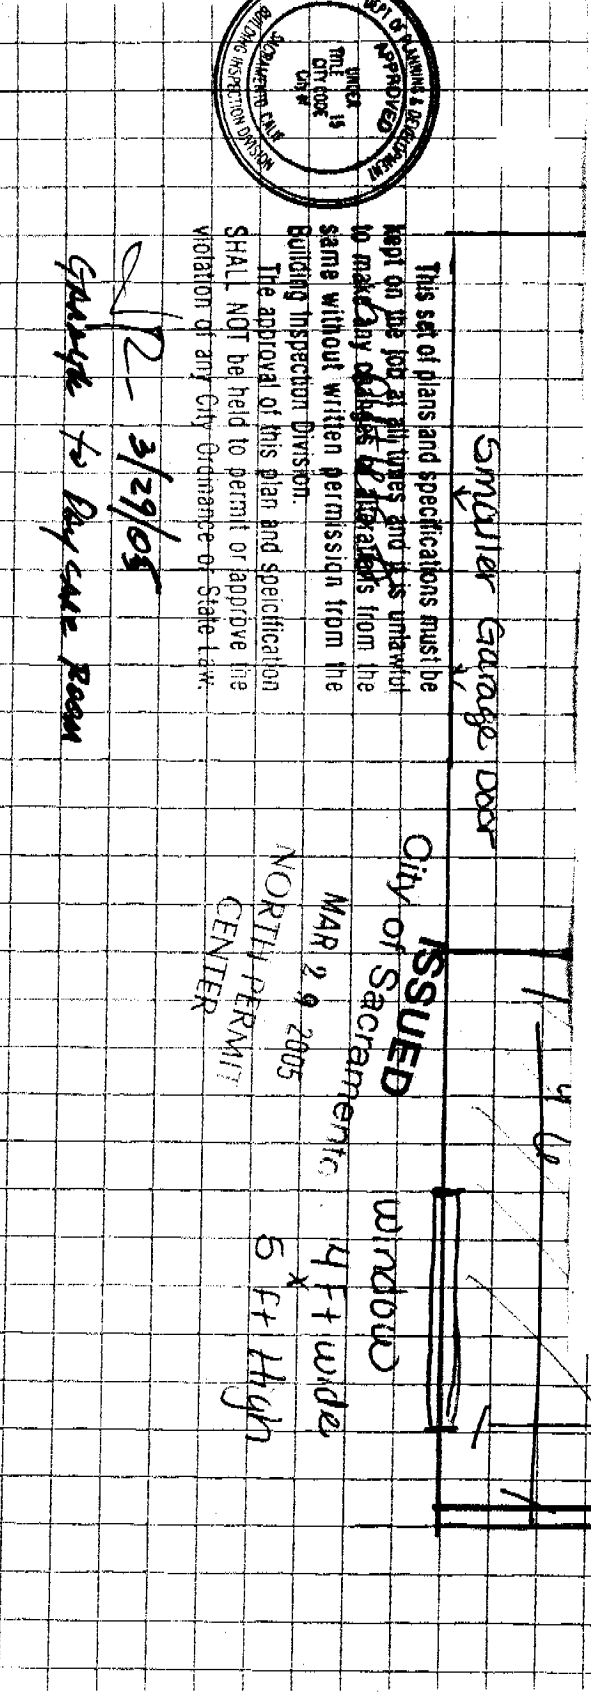 DEPT OF PLANNING & DEVELOPMENT
APPROVED
UNDER
TITLE 15
CITY CODE
City of
SACRAMENTO CALIF
BUILDING INSPECTION DIVISION
Smaller Garage Door
This set of plans and specifications must be
kept on the job at all times and it is unlawful
to make any changes or alterations from the
same without written permission from the
Building Inspection Division.
The approval of this plan and speicification
SHALL NOT be held to permit or approve the
violation of any City Ordinance or State Law.
3/29/05
Garage to Daycare Room
City of Sacramento
ISSUED
MAR 29 2005
NORTH PERMIT
CENTER
window
4 Ft wide
x
5 Ft High